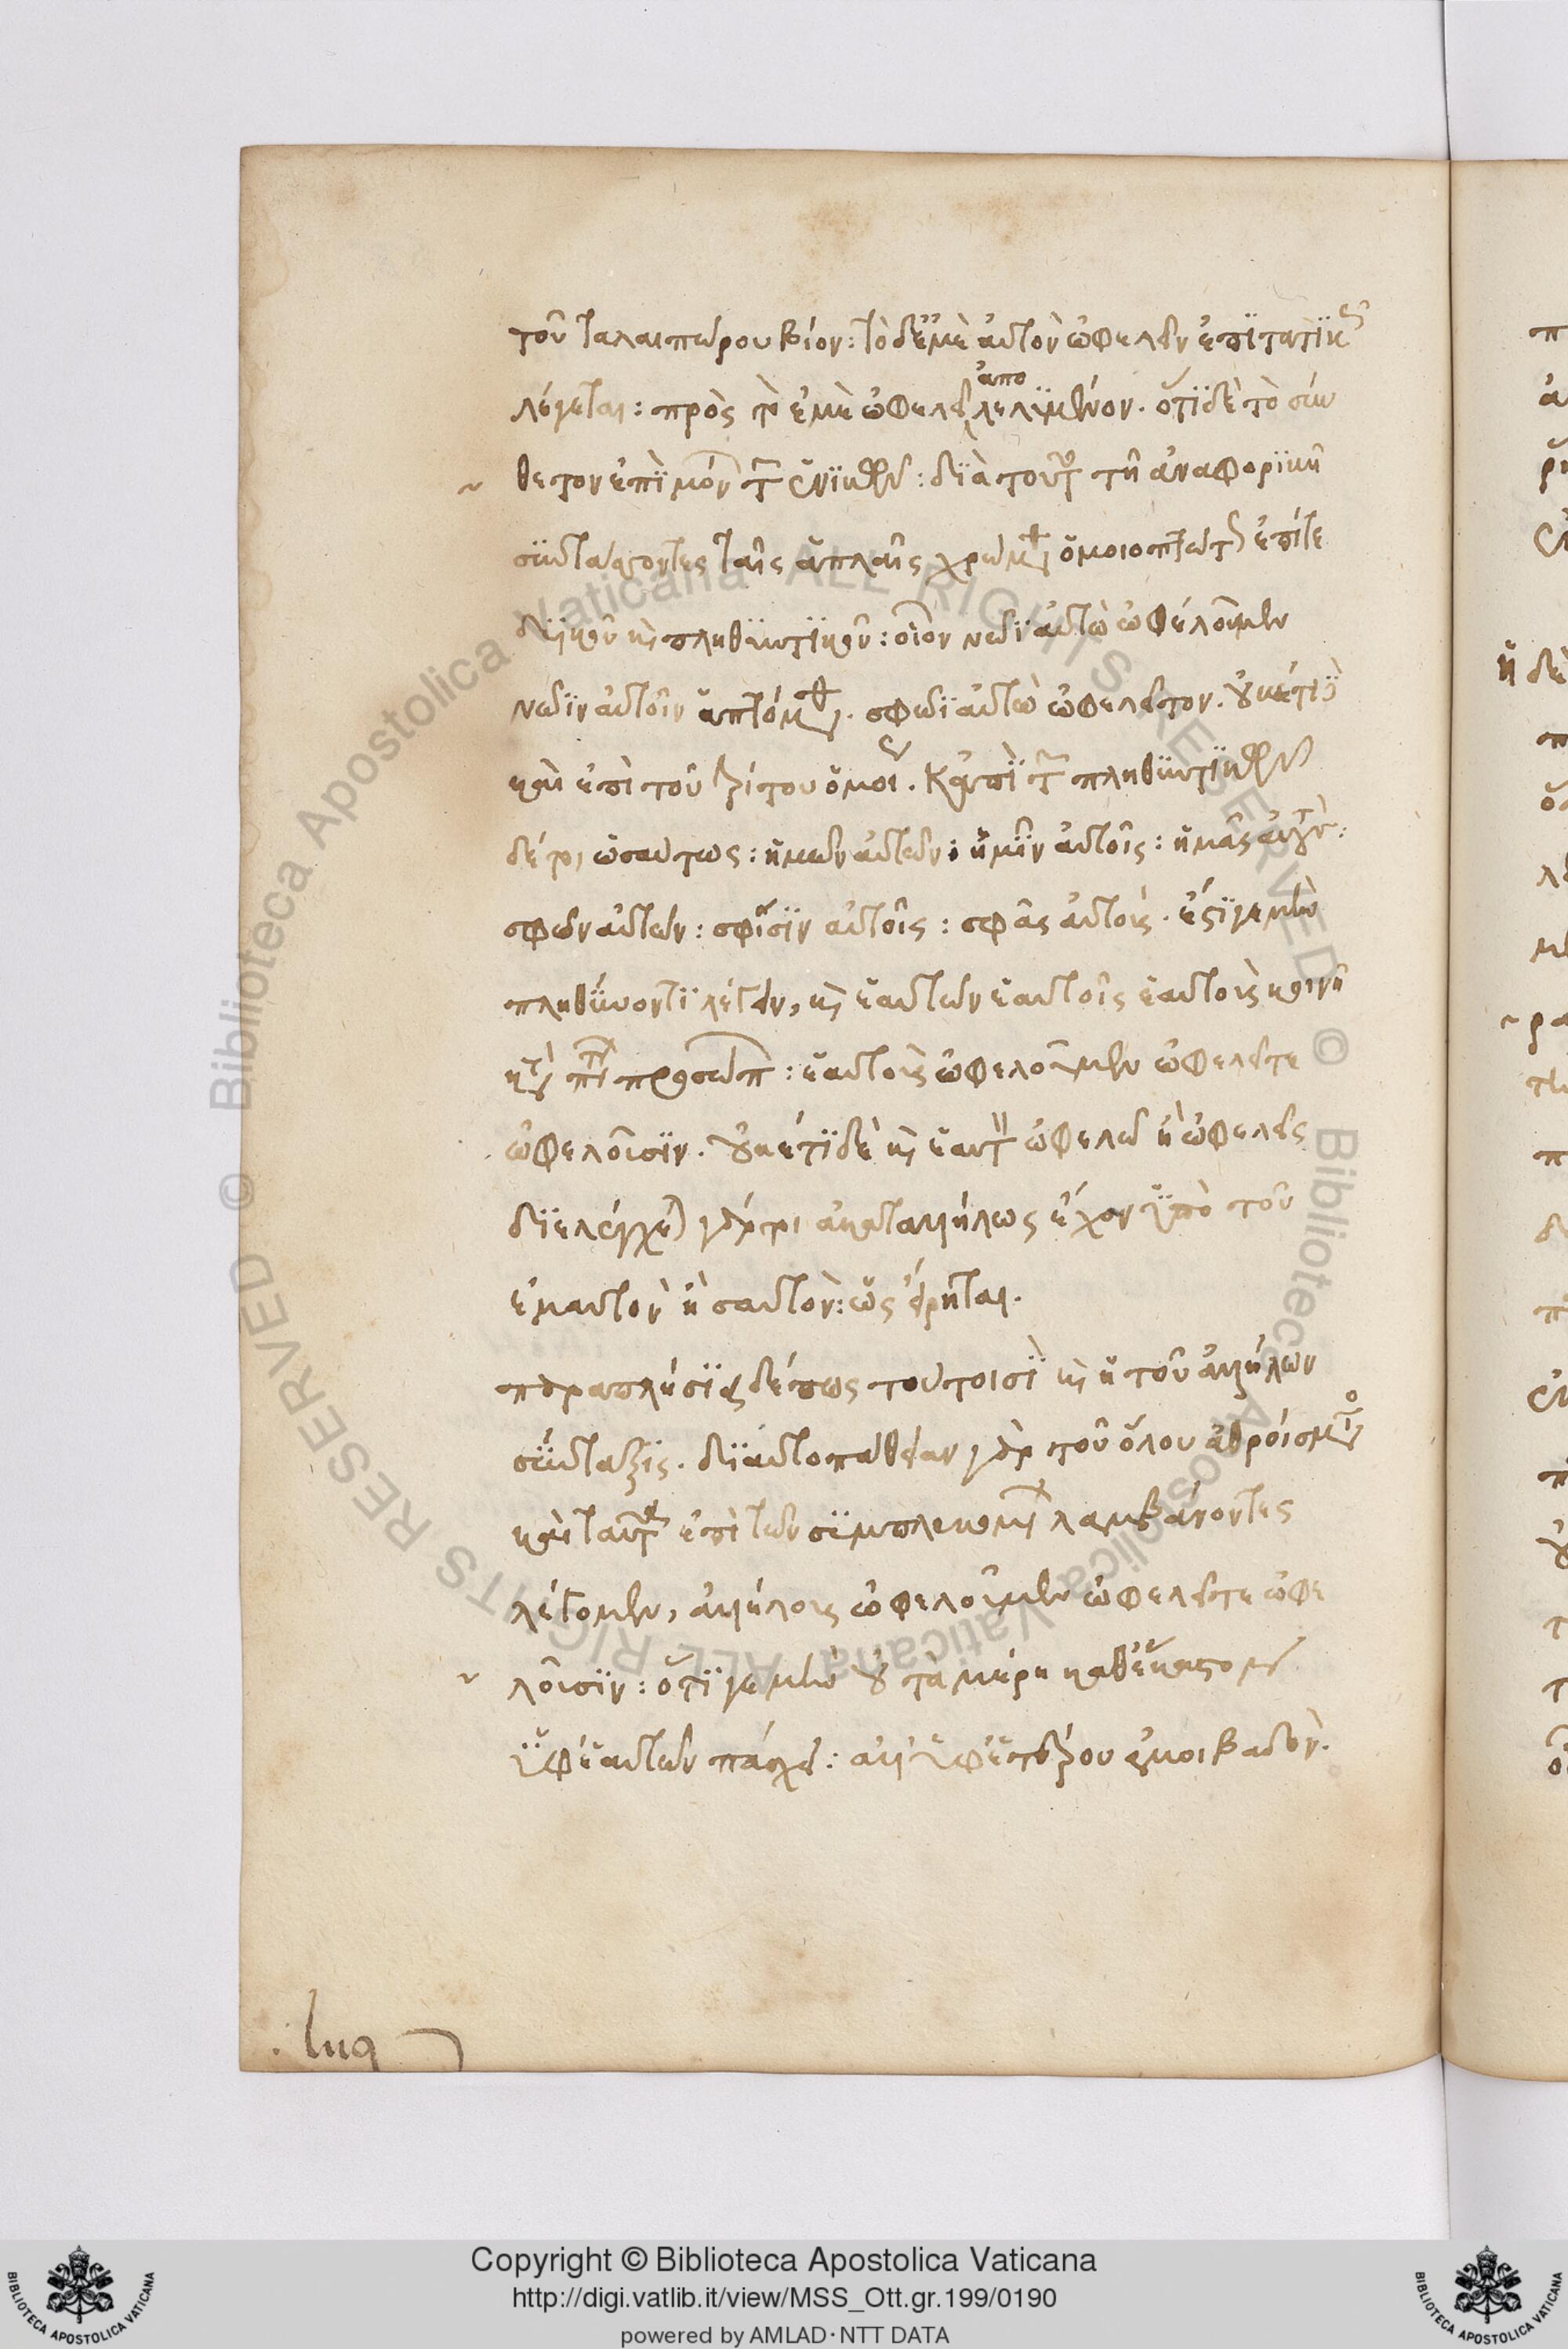 τοῦ ταλαιπώρου βίου: τὸ δὲ ἐμὲ αὐτὸν ὠφελεῖν ἐπϊτατϊκῶς
λέγεται: πρὸς τὸ ἐμὲ ὠφελεῖν ἀπολελϋμένον. ὅτϊ δὲ τὸ σύν
θετον ἐπὶ μόνων τῶν ἑνϊκῶν: δϊὰ τοῦτο τῇ ἀναφορϊκῇ
σϋντάσσοντες ταῖς ἁπλαῖς χρώμεθα ὁμοιοπτώτως ἐπί τε
δϋϊκοῦ καὶ πληθϋντϊκοῦ: οἷον νῶϊ αὐτὼ ὠφελοῦμεν
νῶϊν αὐτοῖν ἁπτόμεθα. σφῶϊ αὐτὼ ὠφελεῖτον. οὐκέτϊ
καὶ ἐπὶ τοῦ τρίτου ὁμοίως. κἀπὶ τῶν πληθϋντϊκῶν
δέ τοι ὡσαύτως: ἡμῶν αὐτῶν: ἡμῖν αὐτοῖς: ἡμᾶς αὐτούς:
σφῶν αὐτῶν: σφίσϊν αὐτοῖς: σφᾶς αὐτούς. ἔστϊ γε μὴν
πληθύνοντϊ λέγειν, καὶ ἑαυτῶν ἑαυτοῖς ἑαυτοὺς κοινῇ
κατὰ πᾶν πρόσωπον: ἑαυτοὺς ὠφελοῦμεν ὠφελεῖτε
ὠφελοῦσϊν. οὐκέτϊ δὲ καὶ ἑαυτὸν ὠφελῶ ἢ ὠφελεῖς
δϊελέγχεται γάρ τοι ἀκαταλλήλως ἔχον ὑπὸ τοῦ
ἐμαυτὸν ἢ σαυτὸν: ὡς εἴρηται.
παραπλήσϊος δέ πως τουτοισὶ καὶ ἡ τοῦ ἀλλήλων
σύνταξϊς. δϊ αὐτοπάθειαν γὰρ τοῦ ὅλου ἀθροίσματος
καὶ ταύτην ἐπὶ τῶν σϋμπλεκομένων λαμβάνοντες
λέγομεν, ἀλλήλους ὠφελοῦμεν ὠφελεῖτε ὠφε
λοῦσϊν: ὅτϊ γε μὴν οὐ τὰ μέρη καθέκαστον
ὑφ' ἑαυτῶν πάσχει: ἀλλ' ὑφ' ἑτέρου ἀμοιβαδόν.
Copyright © Biblioteca Apostolica Vaticana
http://digi.vatlib.it/view/MSS_Ott.gr.199/0190
powered by AMLAD·NTT DATA